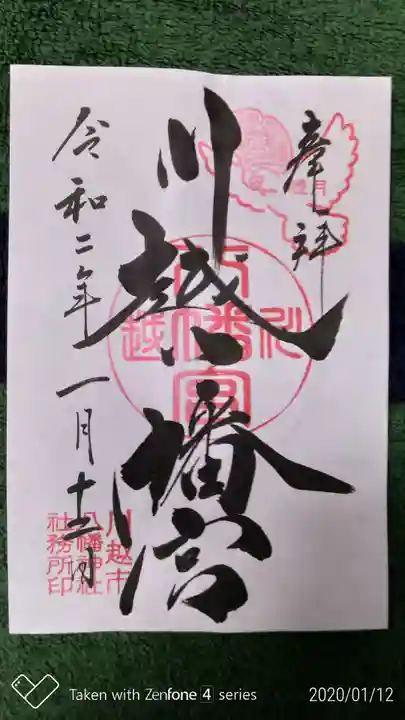 奉拝
川越八幡宮
令和二年一月十二日
川越
八幡宮
川越市
八幡神社
社務所印
睦月
Taken with Zenfone 4 series
2020/01/12